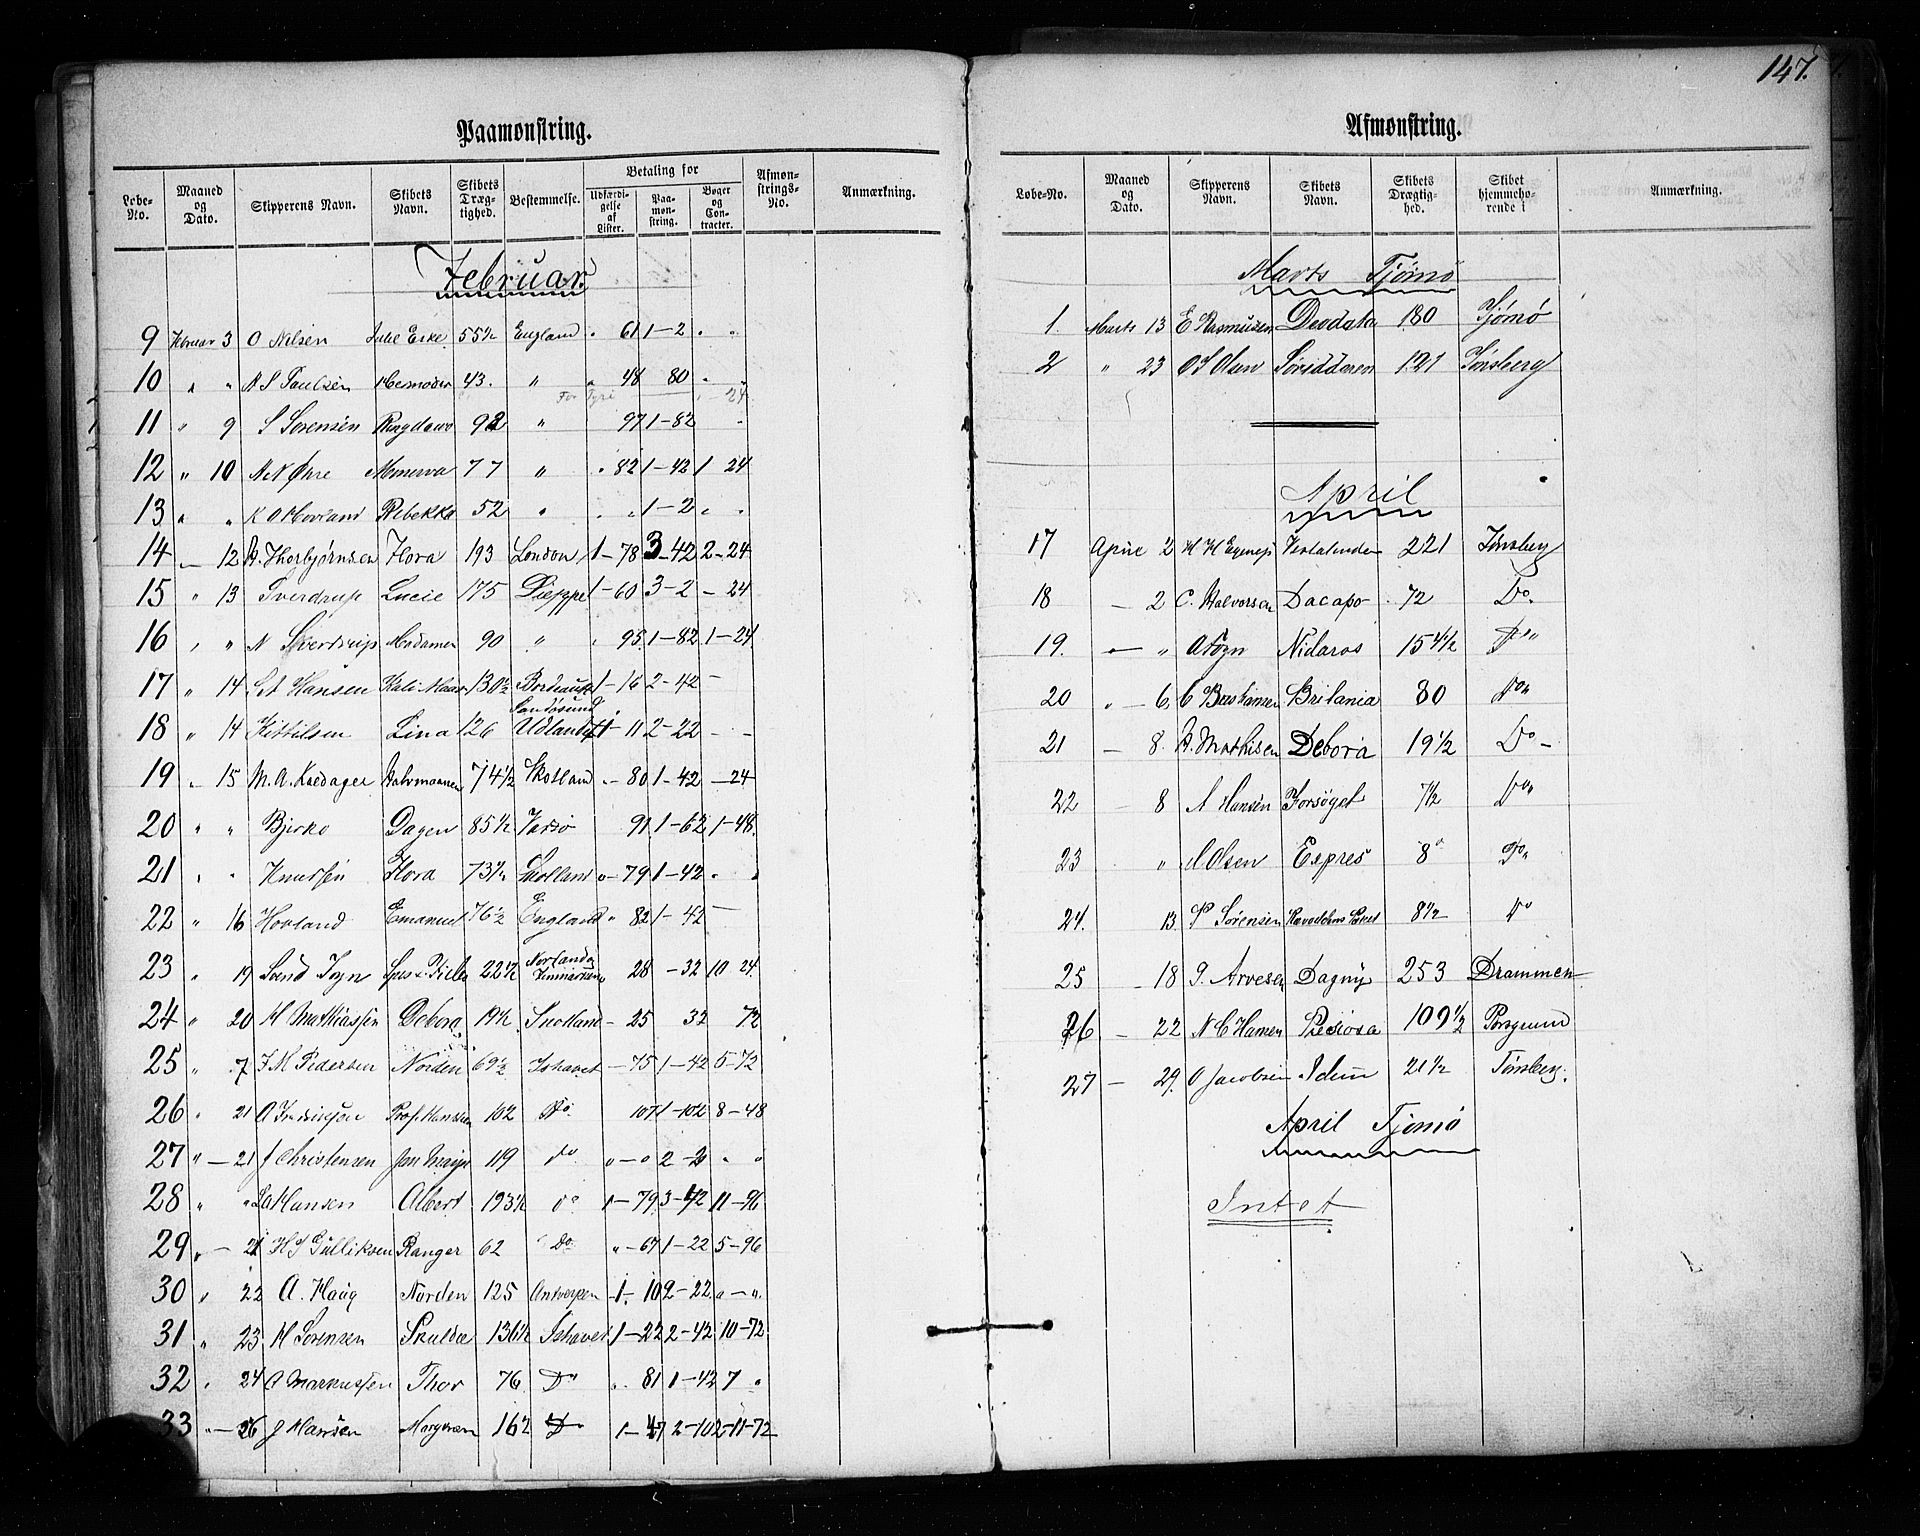 147.
Paamønstring.
Løbe-No. Maaned og Dato. Skipperens Navn. Skibets Navn. Skibets Dræg-tighed. Bestemmelse. Betaling for Udfærdi-gelse af Lister. Paa-møn-string. Bøger og Con-tracter. Afmøn-strings-No. Anmærkning.
Februar.
9 Februar 3 O Nilsen 55½ England " 61 1-2 " "
10 " " N S Paulsen 43. " " 48 80 " 24
11 " 9 S Sørensen 92 " 97 1-82 "
12 " 10 Minerva 77 " " 82 1-42 1 24
13 " " K O Hovland Rebekka 52 " " " 1-2 " "
14 - 12 A. Thorbjørnsen Flora 193 London 1-78 3-42 2-24
15 " 13 Sverdrup Lucie 175 Dieppe 1-60 3-2 - 24
16 " " N Sverdrup 90 " " 95 1-82 1-24
17 " 14 Hansen 130½ Bordeaux 1-16 2-42 -
18 " 14 Kittilsen Lina 126 Sandøsund Udlandet 1-11 2-22 - -
19 " 15 M. A. Halvmaanen 74½ Skotland " - 80 1-42 - 24
20 " " Bjerko Dagen 85½ 91 1-62 1-48
21 " " Knutsen Flora 73½ " - 79 1-42 " "
22 " 16 Hovland Emanuel 76½ England " 82 1-42 -
23 " 19 22½ 28 - 32 10 24
24 " 20 H Mathiassen Debora 19½ - 25 32 72
25 " 7 J M Pedersen Norden 69½ Ishavet - 75 1-42 5-72
26 " 21 102 Do. 107 1-102 8-48
27 " - 21 J Christensen Jan Mayn 119 do " - " 2-2 " "
28 " " Hansen Albert 193½ do 1-79 3-42 11-96
29 " - 21 H S Gulliksen Ranger 62 Do " - 67 1-22 5-96
30 " 22 A. Haug Norden 125 Antverpen 1-10 2-22 " - "
31 " 23 H Sørensen 136½ Ishavet 1-22 2-42 10-72
32 " 24 O Markussen Thor 76 Do " 81 1-42 7 "
33 " - 26 J Hansen 162 Do 1-47 2-102 11-72
Afmønstring.
Løbe-No. Maaned og Dato. Skipperens Navn. Skibets Navn. Skibets Drægtig-hed. Skibet hjemmehø-rende i Anmærkning.
Marts Tjømø
1. Marts 13 E Rasmusen Deodata 180 Tjømø
2 " 23 O S Olsen 121 Tønsberg
April
17 April 2 221 Tønsberg
18 - 2 C. Halvorsen Dacapo 72 Do.
19. - " Nidaros 154½ Do "
20 " - 6, Britania 80 Do "
21 - 8. A. Mathisen Debora 19½ Do -
22 - 8 A Hansen Forsøget 7½ Do "
23 " Olsen Expres 8 " Do "
24. 13. P Sørensen 8½ Do
25 - 18 P. Arvesen Dagny 253 Drammen
26 - 22 N C Hansen Preciosa 109½ Porsgrund
27 - 29. O Jacobsen Idun 21½ Tønsberg.
April Tjømø
Intet